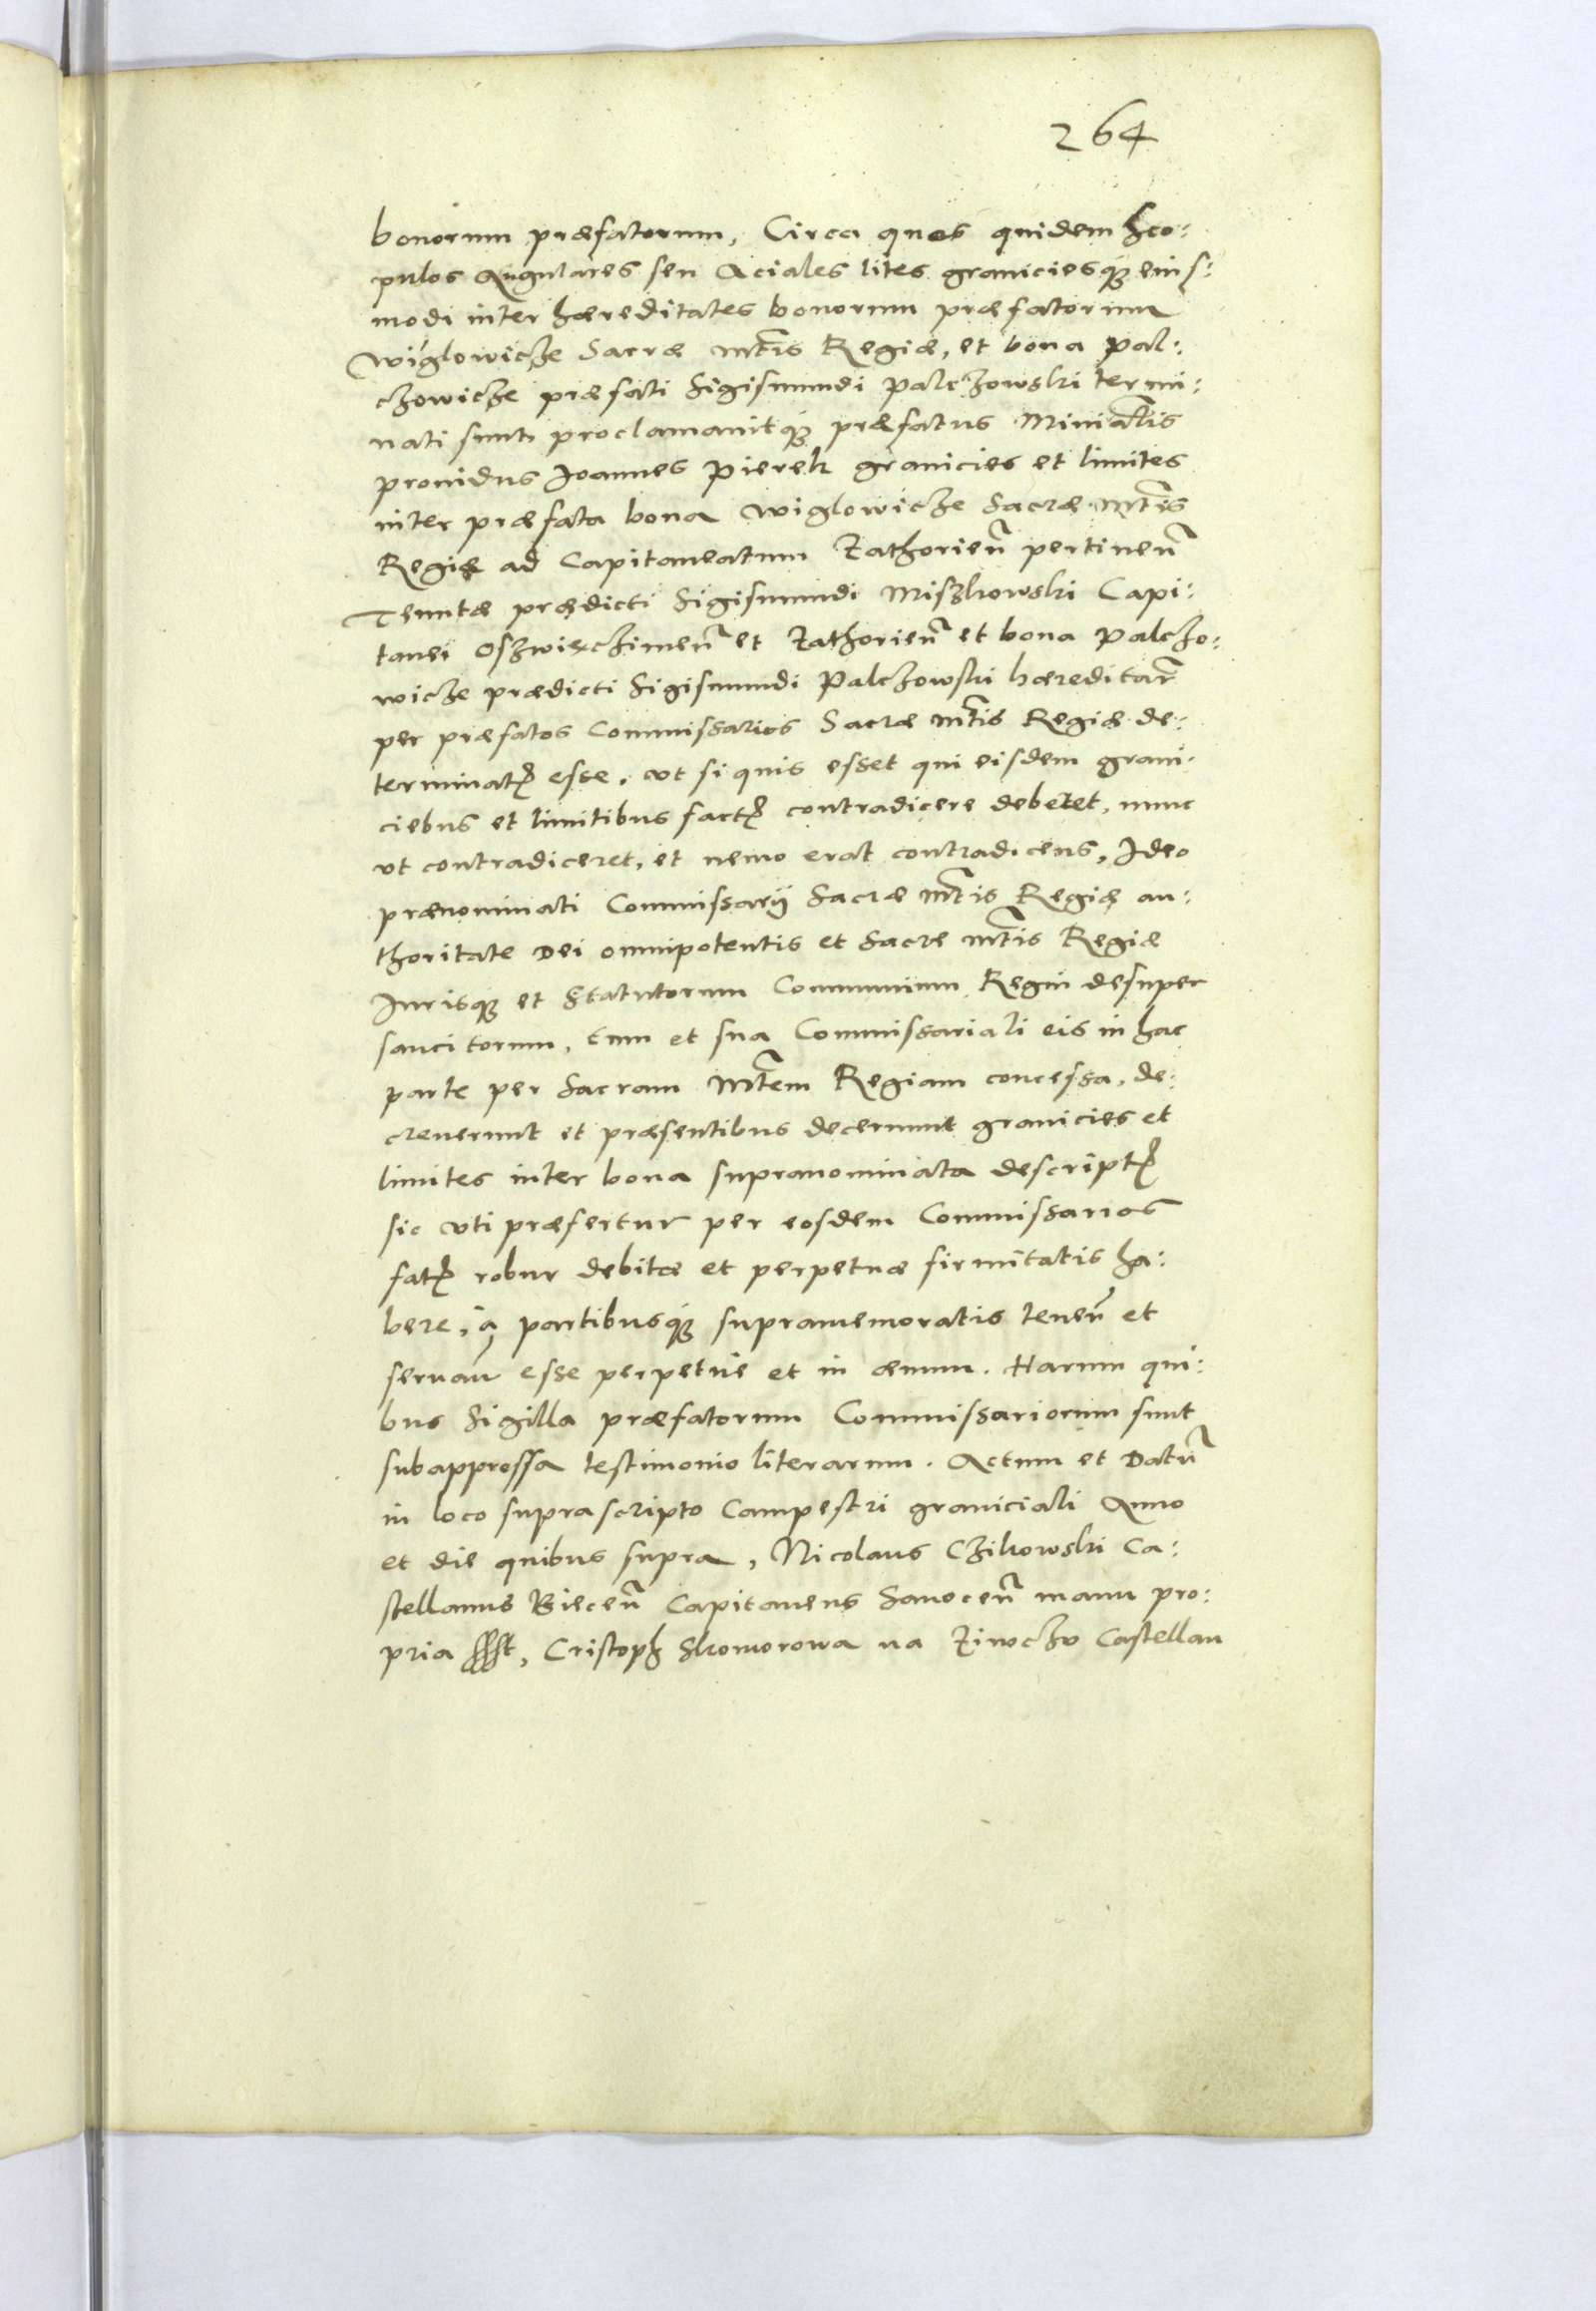 264
bonorum præfatorum, Circa quos quidem sco:
pulos Angulares seu Aciales lites graniciesq; eius:
modi inter hæreditates bonorum præfatorum
Wiglowicze Sacræ Mtis Regiæ, et bona Pal:
czowicze præfati Sigismundi Palczowski termi:
nati sunt, proclamauitq; præfatus Miniatlis
prouidus Joannes Pierek granicies et limites
inter præfata bona Wiglowicze Sacræ Mtis
Regiæ ad Capitaneatum Zathorien̄ pertinen̄
Tenutæ prædicti Sigismundi Miszkowski Capi:
tanei Oszwieczimen̄ et Zathorien̄ et bona Palczo:
wicze prædicti Sigismundi Palczowski hæreditar̄
per præfatos Commissarios Sacræ Mtis Regiæ de:
terminatꝭ esse, vt si quis esset qui eisdem grani:
ciebus et limitibus factꝭ contradicere deberet, nunc
vt contradiceret, et nemo erat contradicens, Ideo
prænominati Commissarij Sacræ Mtis Regiæ au:
thoritate Dei omnipotentis et Sacræ Mtis Regiæ
Jurisq; et Statutorum Communium Regni desuper
sancitorum, tum et sua Commissariali eis in hac
parte per Sacram Mtem Regiam concessa, de:
creuerunt et præsentibus decernunt granicies et
limites inter bona supranominata descriptꝭ
sic vti præfertur per eosdem Commissarios
fatꝭ robur debitæ et perpetuæ firmitatis ha:
bere, a partibusq; supramemoratis tenen̄ et
seruan̄ esse perpetue et in æuum. Harum qui:
bus Sigilla præfatorum Commissariorum sunt
subappressa testimonio literarum. Actum et Datum̄
in loco suprascripto Campestri graniciali Anno
et die quibus supra, Nicolaus Czikowski Ca:
stellanus Biecen̄ Capitaneus Sanocen̄ manu pro:
pria ssst, Cristoph Skomorowa na Ziwczv Castellan